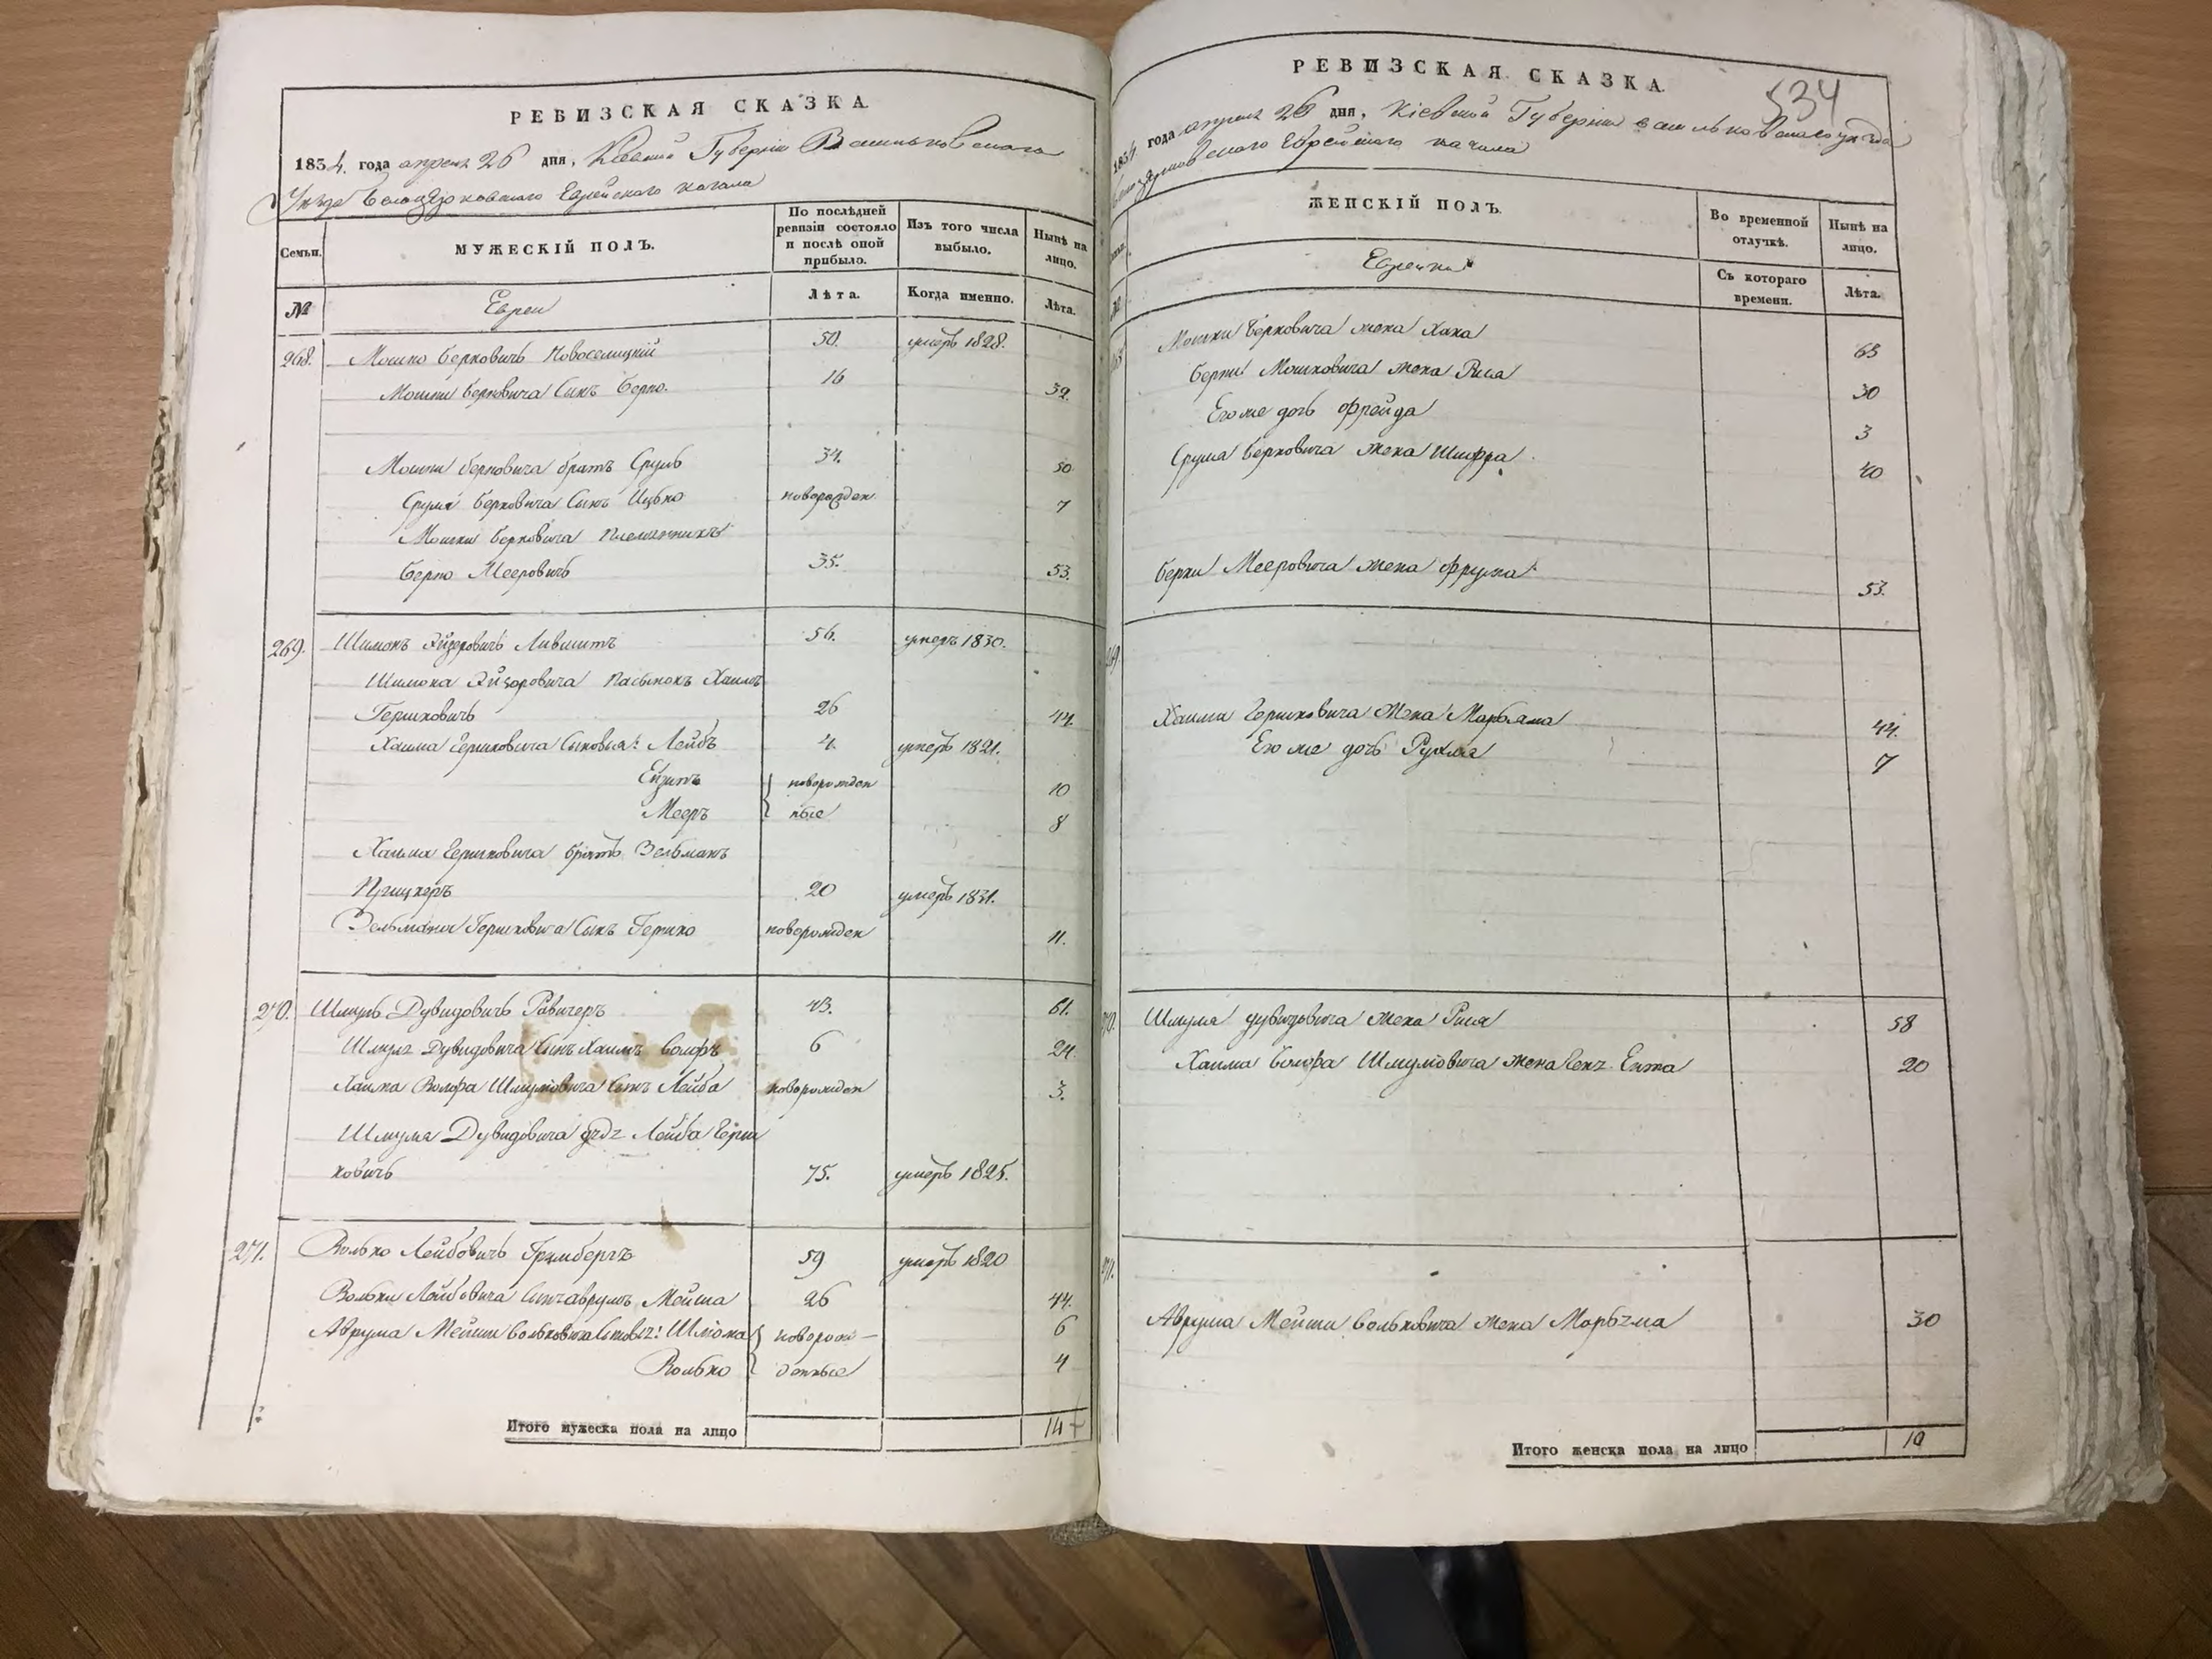 РЕВИЗСКАЯ СКАЗКА.
1834. года апреля 26 дня, Кіевской Губерніи Васильковскаго
Уѣзда Белоцерковскаго Еврейскаго кагала
Семьи.
МУЖЕСКІЙ ПОЛЪ.
По послѣдней ревизіи состояло и послѣ оной прибыло.
Изъ того числа выбыло.
Нынѣ на лицо.
№
Евреи
Лѣта.
Когда именно.
Лѣта.
268. Мошко Берковичъ Новоселицкій 50. умеръ 1828.
Мошки Берковича Сынъ Берко. 16 32.
Мошки Берковича братъ Сруль 34. 50
Сруля Берковича Сынъ Ицко новорожден 7
Мошки Берковича племянникъ
Берко Мееровичъ 35. 53.
269. Шимонъ Эйзеровичъ Лившитъ 56. умеръ 1830.
Шимона Эйзоровича пасынокъ Хаимъ
Гершковичъ 26 44.
Хаима Гершковича Сыновья: Лейбъ 4. умеръ 1821.
Ейзикъ } новорожден 10
Мееръ } ные 8
Хаима Гершковича братъ Зельманъ
Прицкеръ 20 умеръ 1831.
Зельмана Гершковича Сынъ Гершко новорожден 11.
270. Шмуль Дувидовичъ Равичеръ 43. 61.
Шмуля Дувидовича Сынъ Хаимъ Волфъ 6 24
Хаима Волфа Шмуловича Сынъ Лейба новорожден 3.
Шмуля Дувидовича дядя Лейба Герш
ковичъ 75. умеръ 1825.
271. Волько Лейбовичъ Гримбергъ 59 умеръ 1820
Вольки Лейбовича Сынъ Аврумъ Мейша 26 44.
Аврума Мейши Вольковича Сыновья: Шлома } новорож- 6
Волько } денные 4
Итого мужеска пола на лицо 14
РЕВИЗСКАЯ СКАЗКА.
534
1834. года апреля 26 дня, Кіевской Губерніи Васильковскаго уезда
Белоцерковскаго Еврейскаго кагала
ЖЕНСКІЙ ПОЛЪ.
Во временной отлучкѣ.
Нынѣ на лицо.
Еврейки
Съ котораго времени.
Лѣта.
Мошки Берковича жена Хана 63
Берки Мошковича жена Рися 30
Его же дочь Фрейда 3
Сруля Берковича жена Шифра 40
Берки Мееровича жена Фрума 53.
Хаима Гершковича жена Марьяма 44.
Его же дочь Рухля 7
Шмуля Дувидовича жена Рися 58
Хаима Волфа Шмуловича жена Ента 20
Аврума Мейши Вольковича жена Марьяма 30
Итого женска пола на лицо 10